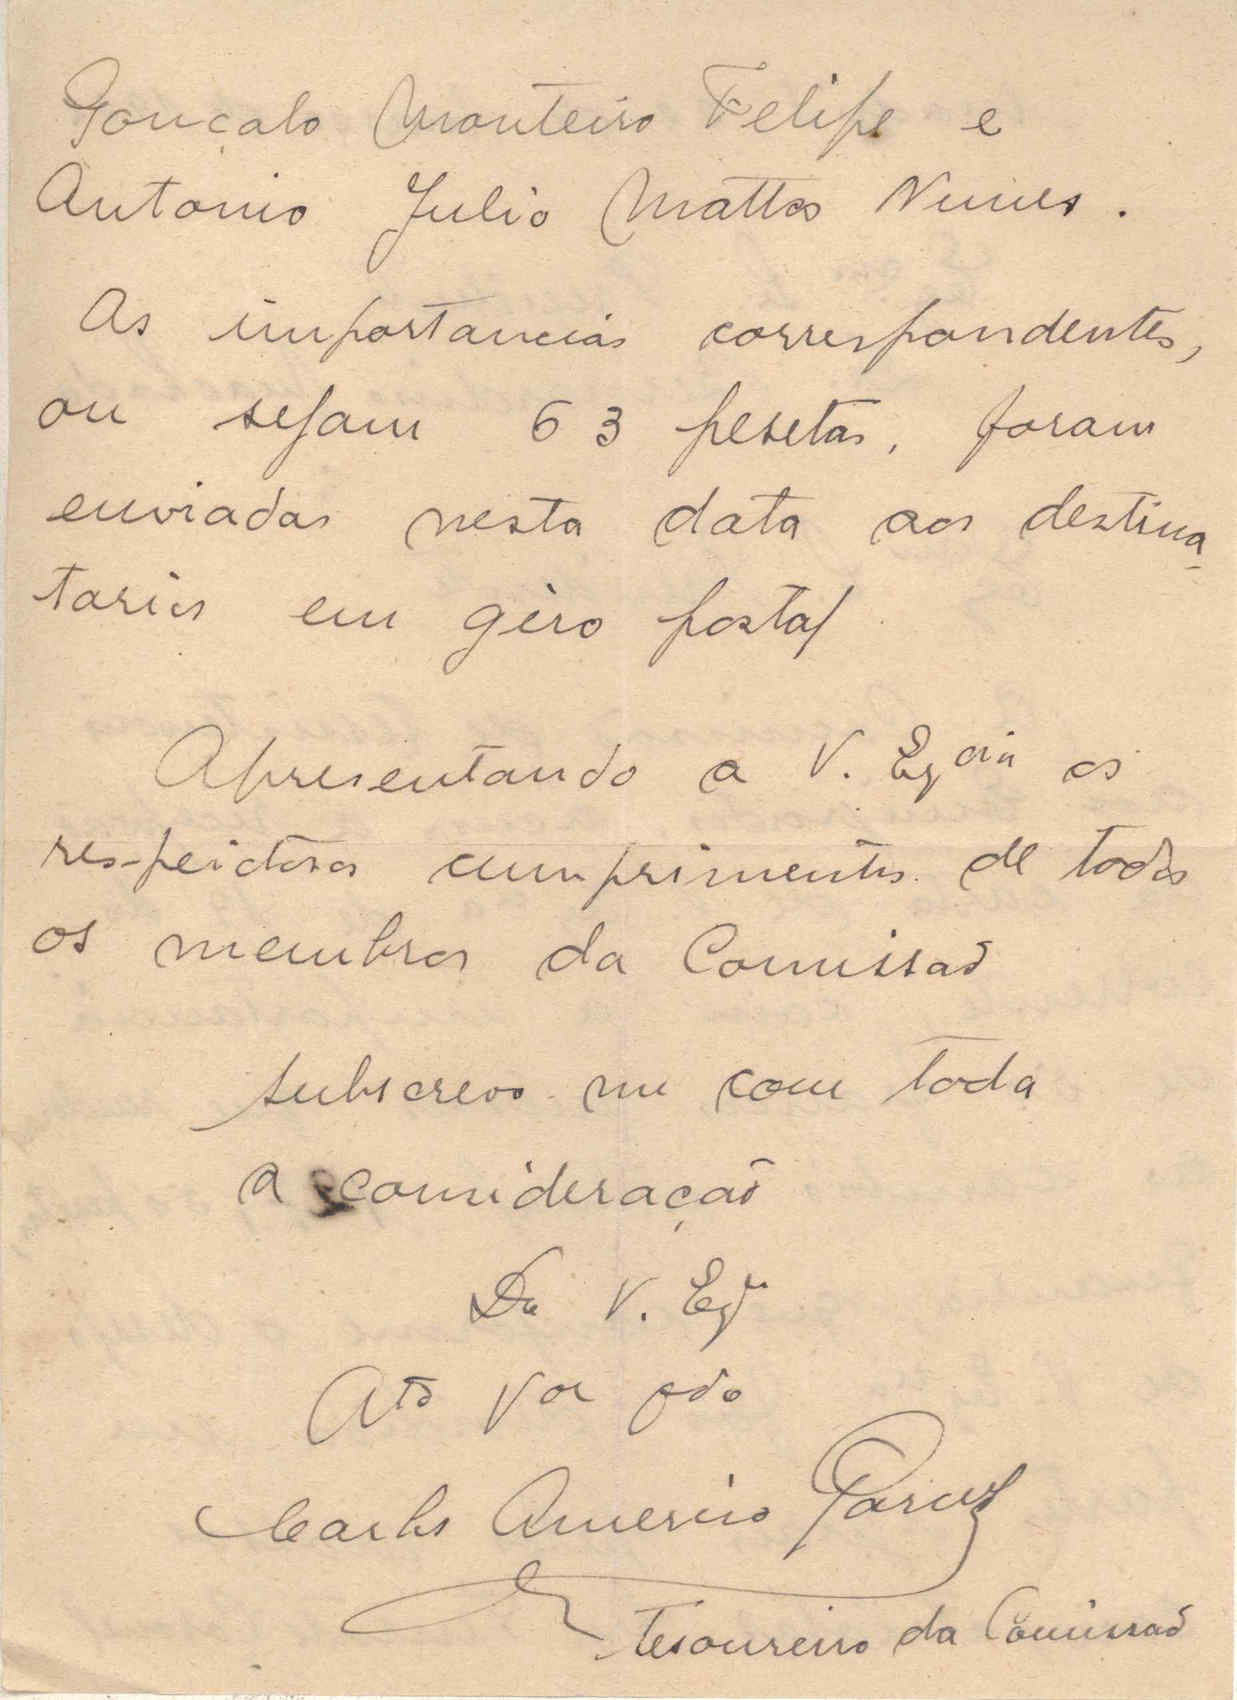 Gonçalo Monteiro Felipe e
Antonio Julio Mattos Nunes.
As importancias correspondentes,
ou sejam 63 pesetas, foram
enviadas nesta data aos destina-
tarios em giro postal
Apresentando a V. Exª cia os
respeitosos cumprimentos de todos
os membros da Comissaõ
subscrevo-me com toda
a consideraçaõ
De V. Exª
Ato Vor Odo
Carlos Americo
Tesoureiro da Comissaõ